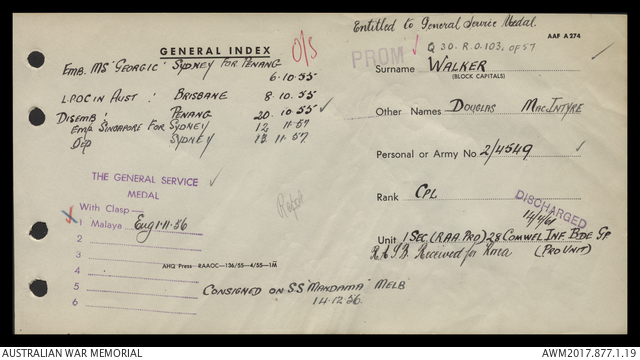 Entitled to General Service Medal.
AAF A 274
GENERAL INDEX
O/S
PROM
Q 30. R.O. 103, OF 57
EMB. MS "GEORGIC" SYDNEY FOR PENANG
6.10.55
Surname WALKER
(BLOCK CAPITALS)
L.POC IN AUST : BRISBANE 8.10.55
DISEMB : PENANG 20.10.55
Other Names DOUGLAS MACINTYRE
EMB SINGAPORE FOR SYDNEY 12 11.57
DEP SYDNEY 13 11.57
Personal or Army No. 2/4549
THE GENERAL SERVICE
MEDAL
With Clasp—
1 Malaya Eng 1.11.56
2
3
4
5
6
Rank CPL
DISCHARGED
14/4/61
Unit 1 SEC (RAA PRO) 28 COMWEL INF. BDE GP
(PRO UNIT)
Received for
AHQ Press RAAOC—136/55—4/55—1M
CONSIGNED ON S.S "MANDAMA" MELB
14.12.56
AUSTRALIAN WAR MEMORIAL
AWM2017.877.1.19